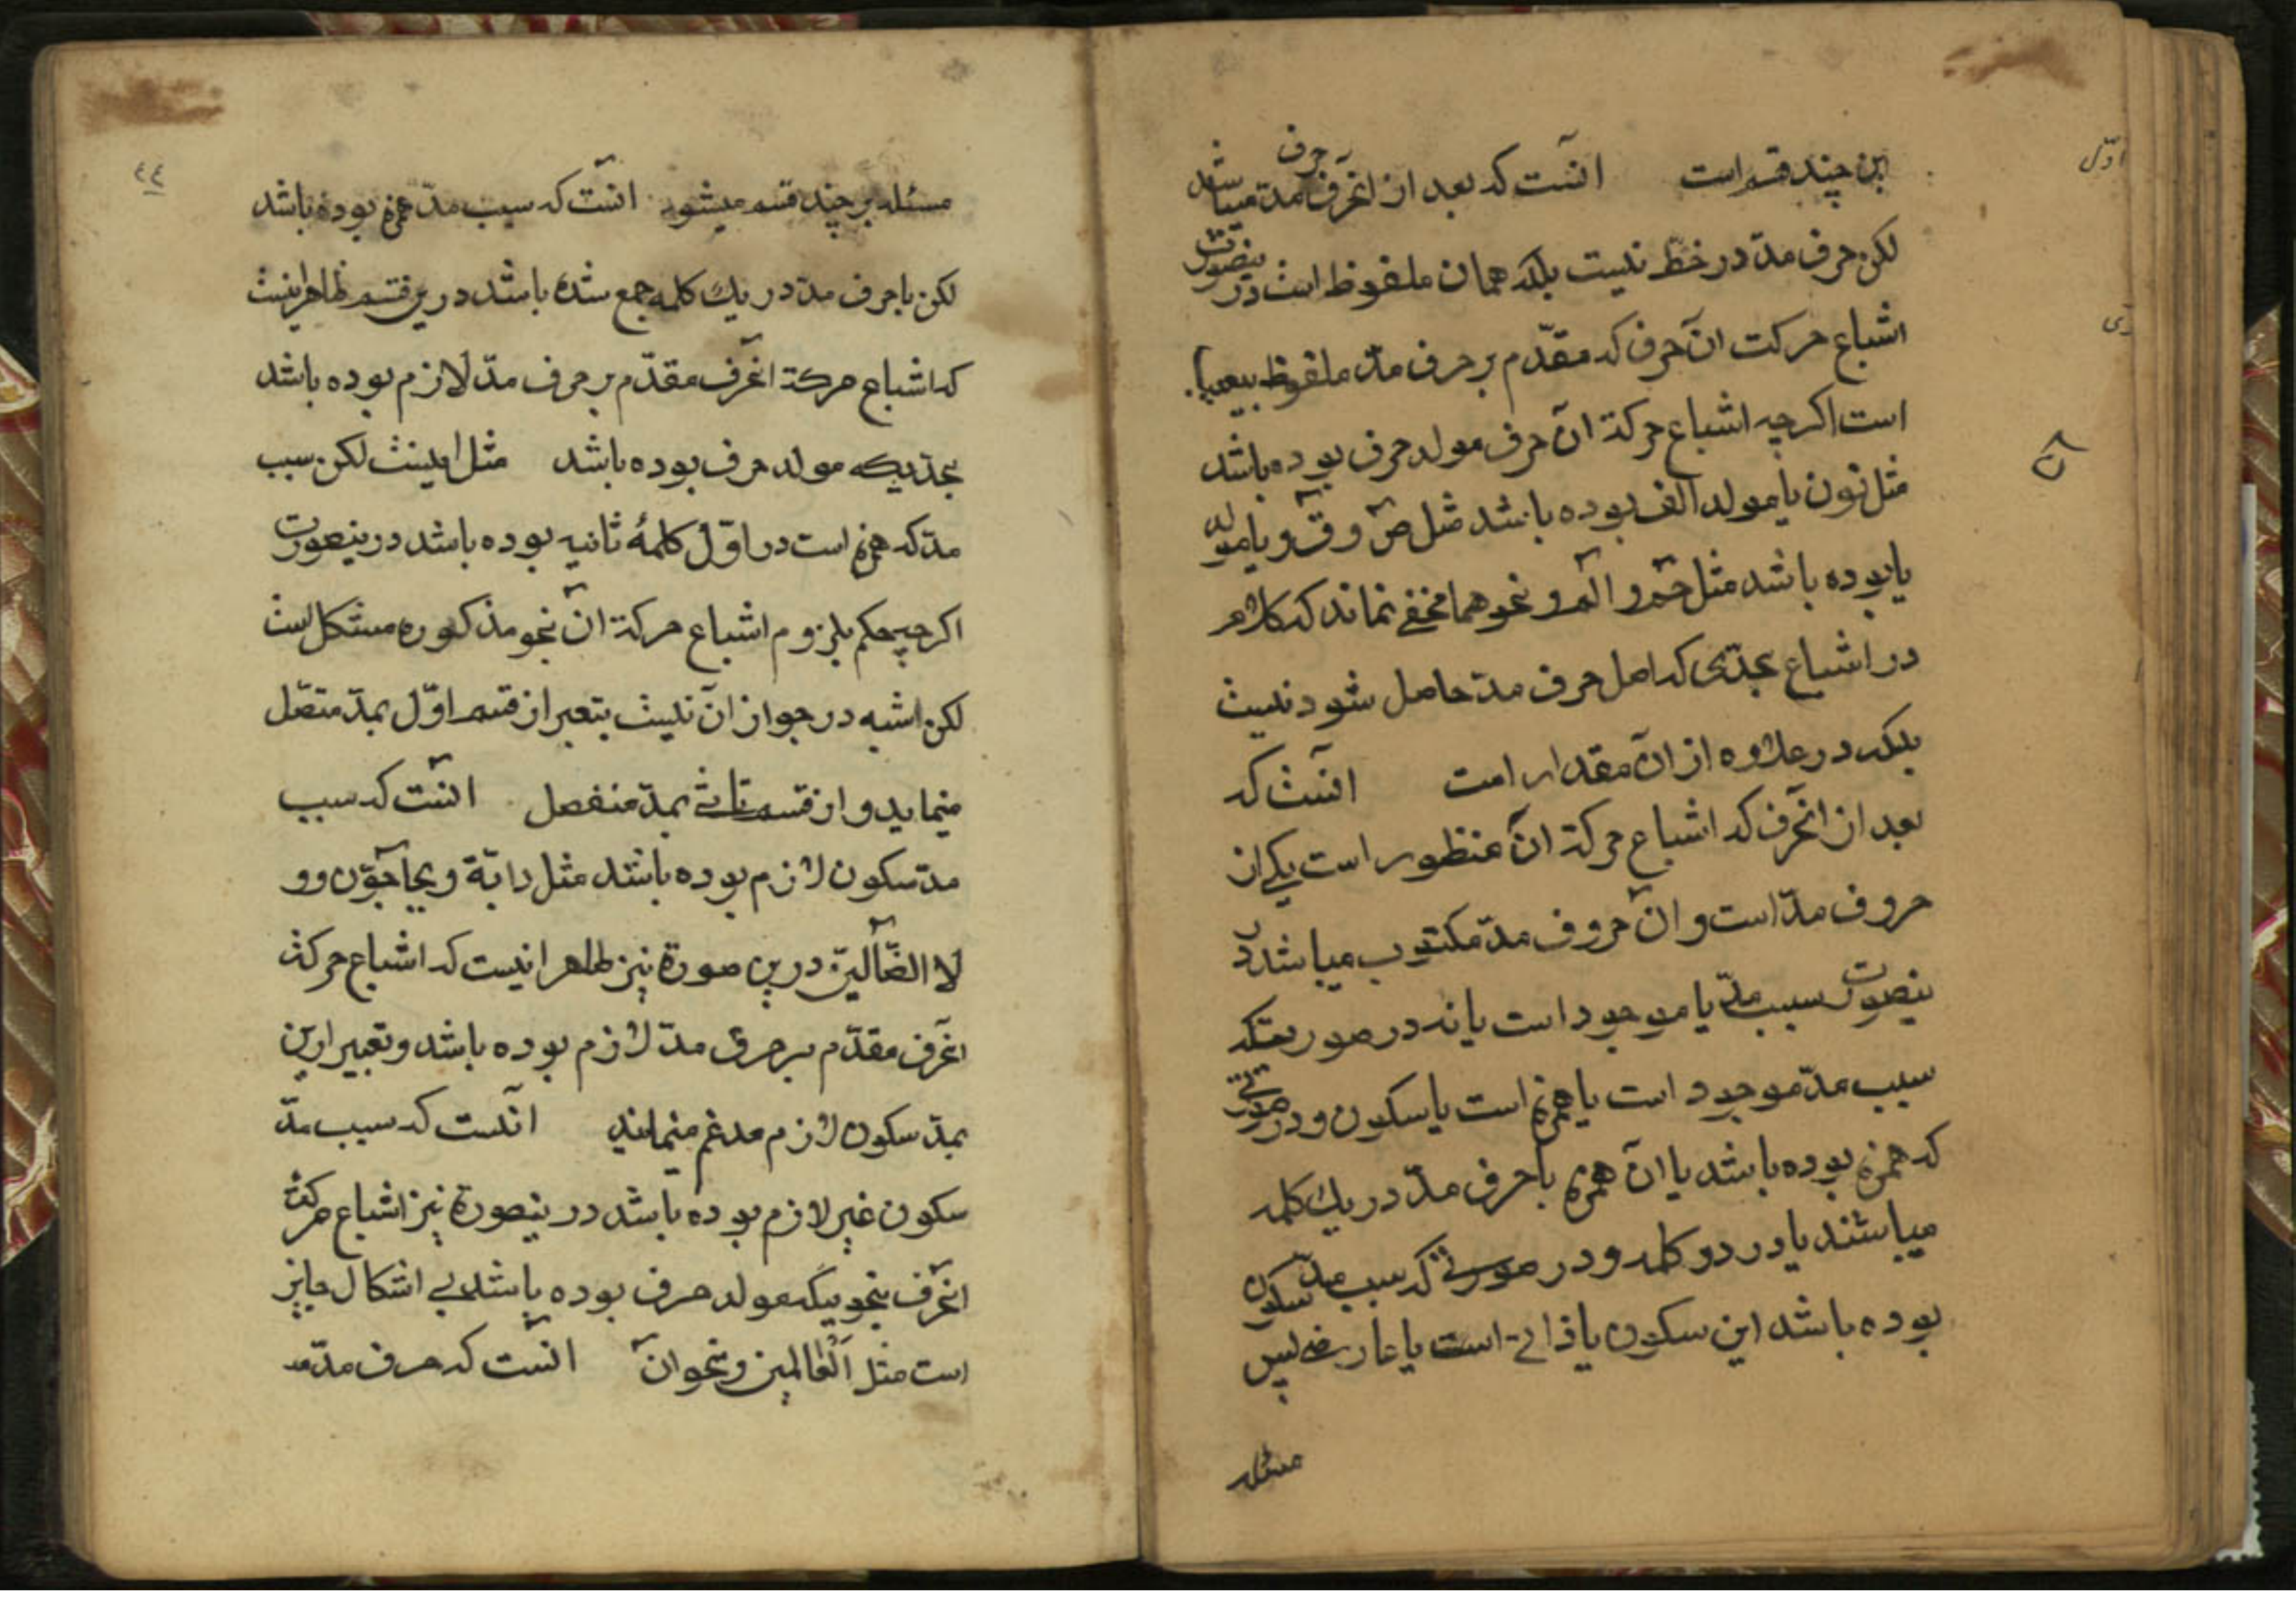 این چند قسم است انست که بعد از انحرف حرف مد میباشد
لکن حرف مد در خط نیست بلکه همان ملفوظ است درینصورت
اشباع حرکت آن حرف که مقدّم بر حرف مدّ ملفوظ
است اکرچه اشباع حرکة آن حرف مولد حرف بوده باشد
مثل نون یا مولد الف بوده باشد مثل صٓ و قٓ و یا مولد
یا بوده باشد مثل حٓم و الٓم و نحو هما مخفی نماند که کلام
در اشباع بحدّی که اصل حرف مد حاصل شود نیست
بلکه در علاوه از آن مقدار است انست که
بعد از انحرف که اشباع حرکة آن منظور است یکی از
حروف مدّ است و آن حروف مدّ مکتوب میباشد در
ینصورت سبب مدّ یا موجود است یا نه در صورتیکه
سبب مدّ موجود است یا همزه است یا سکون و در صورتی
که همزه بوده باشد یا آن همزه با حرف مدّ در یك کلمه
میباشند یا در دو کلمه و در صورتی که سبب مدّ سکون
بوده باشد این سکون یا ذاتی است یا عارضی پس
مسئله
اوّل
٤٤
مسئله بر چند قسم میشود انست که سبب مدّ همزه بوده باشد
لکن با حرف مدّ در یك کلمه جمع شده باشد درین قسم ظاهر اینست
که اشباع حرکة انحرف مقدّم بر حرف مدّ لازم بوده باشد
بحدیکه مولد حرف بوده باشد مثل اینست لکن سبب
مد که همزه است در اوّل کلمهٔ ثانیه بوده باشد درینصورت
اکرچه حکم بلزوم اشباع حرکة آن نحو مذکوره مشکل است
لکن شبه در جواز آن نیست تعبیر از قسم اوّل بمدّ متصل
مینماید و از قسم ثانی بمدّ منفصل انست که سبب
مدّ سکون لازم بوده باشد مثل دابّة و یحآجّون و و
لا الضّآلّین درین صورة نیز ظاهر انیست که اشباع حرکت
انحرف مقدّم بر حرف مدّ لازم بوده باشد و تعبیر ازین
بمدّ سکون لازم مدغم مینمایند آنست که سبب مدّ
سکون غیر لازم بوده باشد در ینصورة نیز اشباع حرکت
انحرف بنحویکه مولد حرف بوده باشد بی اشکال جایز
است مثل الْعالمین و نحو آن انست که حرف مدّ